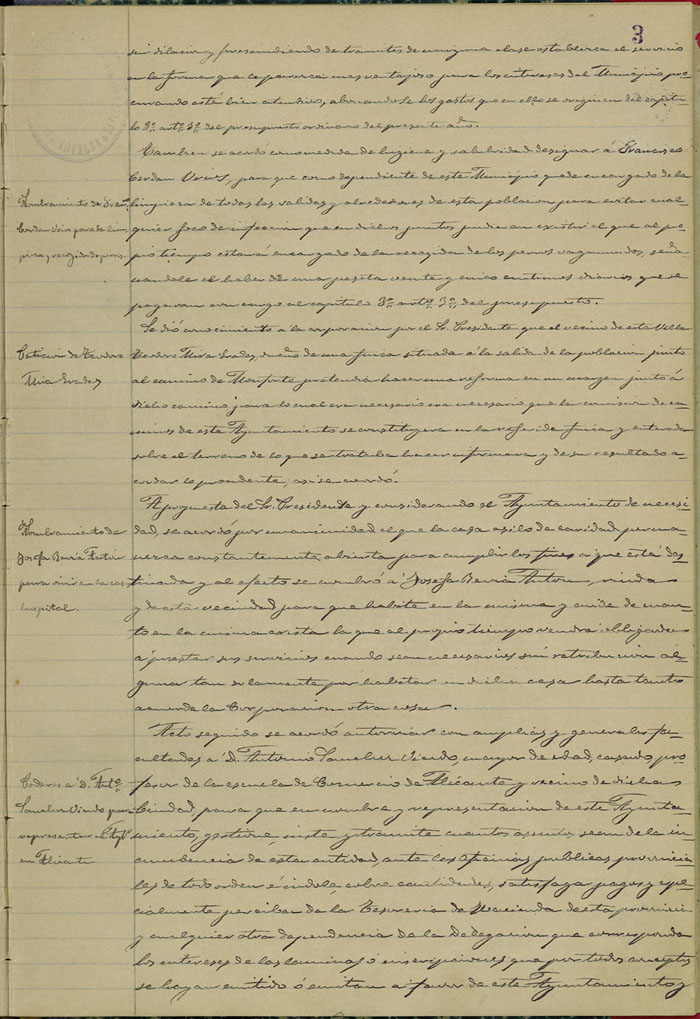 3
sin dilacion y prescindiendo de tramites de ninguna clase establezca el servicio
en la forma que le parezca mas ventajoso para los intereses del Municipio pro
curando esté bien atendido, abonandose los gastos que en ello se originen del capitu
lo 3º artº 3º del presupuesto ordinario del presente año.
Tambien se acordó como medida de higiene y salubridad designar á Francisco
Cerdan Veiz, para que como dependiente de este Municipio quede encargado de la
limpieza de todas las salidas y alrededores de esta poblacion para evitar cual
quier foco de infeccion que en dichos puntos pudieran existir el que al pro
pio tiempo estará encargado de la recogida de los perros vagamundos, seña
landole el haber de una peseta veinte y cinco centimos diarios que se
pagaran con cargo al capitulo 3º artº 3º del presupuesto.
Nombramiento de Francº
Cerdan Veiz para la lim
pieza y recogida de perros.
Se dió conocimiento á la corporacion por el Sr. Presidente que el vecino de esta Villa
Teodoro Mira Prades, dueño de una finca situada á la salida de la poblacion junto
al camino de Monforte pretendia hacer una reforma en un margen junto á
dicho camino para lo cual era necesario era necesario que la comision de ca
minos de este Ayuntamiento se constituyera en la referida finca y enterada
sobre el terreno de lo que se trataba hacer informara y de su resultado a-
cordar lo procedente; asi se acordó.
Peticion de Teodoro
Mira Prades
A propuesta del Sr. Presidente y considerando el Ayuntamiento de necesi
dad, se acordó por unanimidad el que la casa asilo de caridad perma
nezca constantemente abierta para cumplir los fines a que está des
tinada y al efecto se nombró a Josefa Anton, viuda
y de esta vecindad para que habite en la misma y cuide de cuan
to en la misma exista la que al propio tiempo vendrá obligada
a prestar sus servicios cuando sean necesarios sin retribucion al
guna tan solamente por habitar en dicha casa hasta tanto
acuerde la Corporacion otra cosa.
Nombramiento de
Josefa Anton
para vivir en la casa
hospital.
Acto seguido se acordó autorizar con amplias y generales fa-
cultades a D. Antonio Sanchez Oviedo, mayor de edad, casado, pro
fesor de la escuela de Comercio de Alicante y vecino de dicha
Ciudad, para que en nombre y representacion de este Ayunta-
miento, gestione, inste y tramite cuantos asuntos sean de la in
cumbencia de esta entidad, ante las oficinas publicas provincia
les de todo orden é indole, cobre cantidades, satisfaga pagos y espe
cialmente perciba de la Tesoreria de Hacienda de esta provincia
y cualquier otra dependencia de la Delegacion que corresponda
los intereses de las laminas ó inscripciones que por todos conceptos
se hayan emitido ó emitan a favor de este Ayuntamiento y
Poderes a D. Antº
Sanchez Oviedo para
representar al Aytº
en Alicante